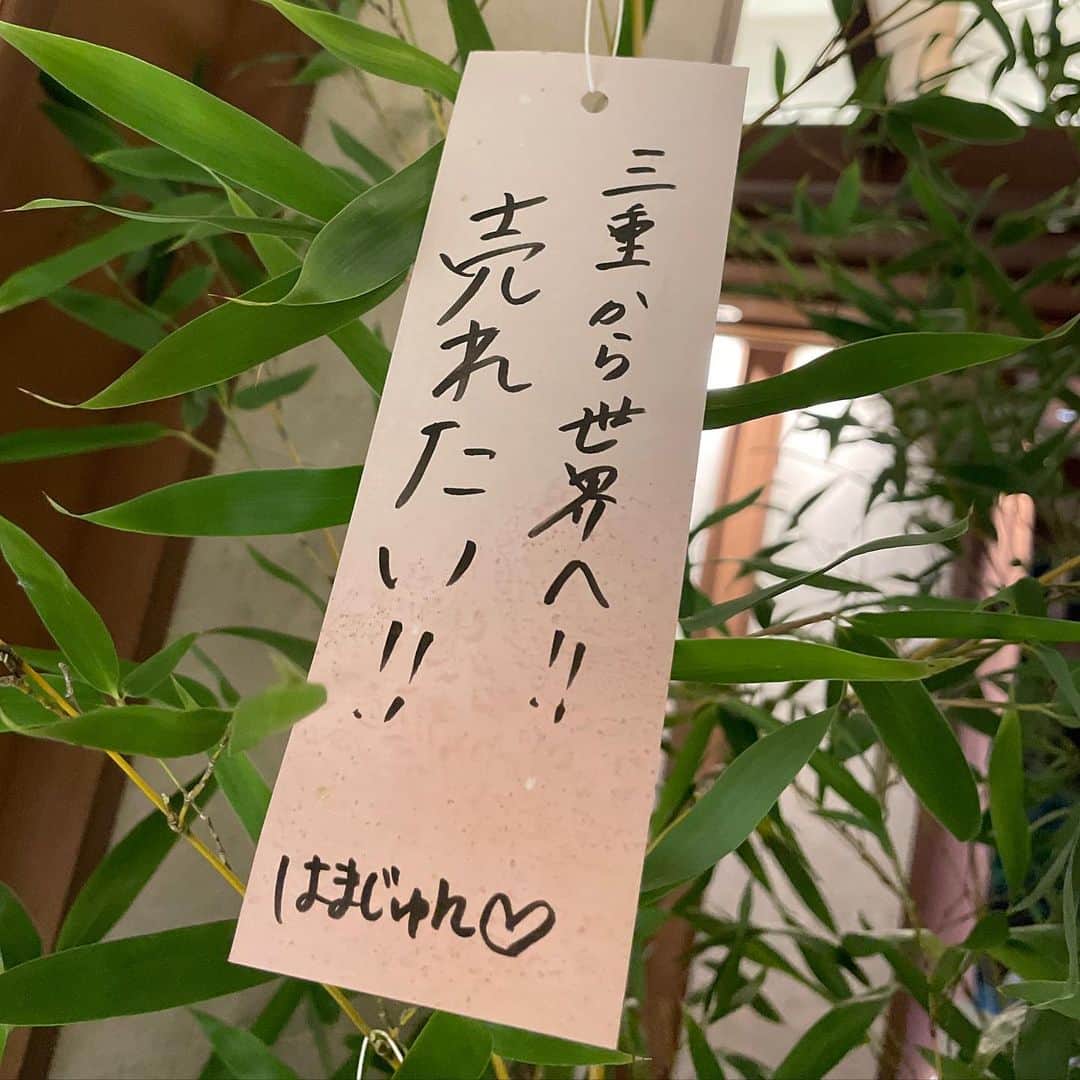 三重から世界へ!!
売れたい!!!
はまじゅん♡